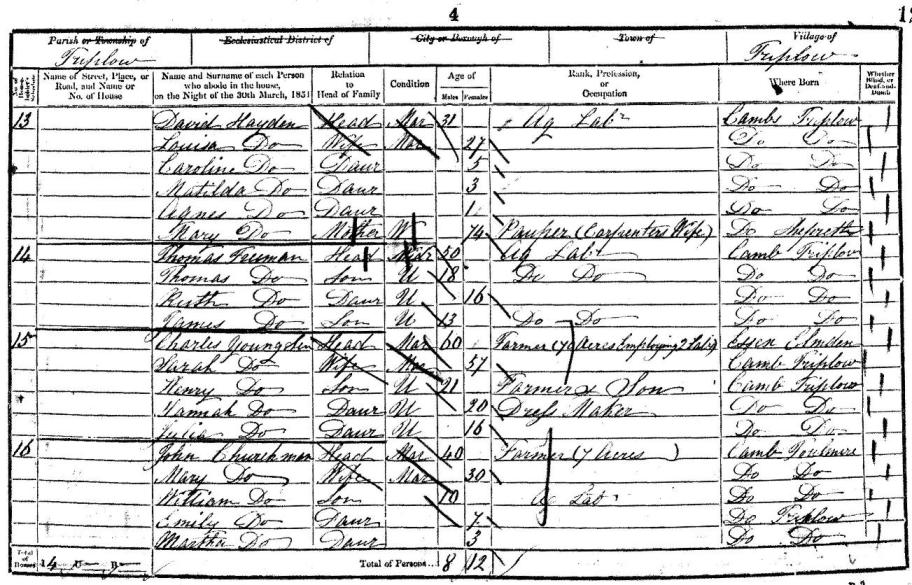 4
Parish or Township of Ecclesiastical District of City or Borough of Town of Village of
Triplow Triplow
Name of Street, Place, or Road, and Name or No. of House Name and Surname of each Person who abode in the house, on the Night of the 30th March, 1851 Relation to Head of Family Condition Age of Males Females Rank, Profession, or Occupation Where Born Whether Blind, or Deaf-and-Dumb
13 David Hayden Head Mar 31 Ag Labr Cambs Triplow
Louisa Do Wife Mar 27 Do Do
Caroline Do Daur 5 Do Do
Matilda Do Daur 3 Do Do
Agnes Do Daur 1 Do Do
Mary Do Mother W 74 Pauper (Carpenters Wife) Do
14 Thomas Freeman Head 50 Ag Labr Camb Triplow
Thomas Do Son U 18 Do Do Do Do
Ruth Do Daur U 16 Do Do
James Do Son U 13 Do Do Do Do
15 Charles Head Mar 60 Farmer (70 Acres Employing 2 Labs) Essex Elmden
Sarah Do Wife Mar 57 Camb Triplow
Henry Do Son U 21 Farmers Son Camb Triplow
Hannah Do Daur U 20 Dress Maker Do Do
Julia Do Daur U 16 Do Do
16 John Churchman Head Mar 40 Farmer (7 Acres) Camb Foulmire
Mary Do Wife Mar 30 Do Do
William Do Son 10 Ag Labr Do Do
Emily Do Daur 7 Do Triplow
Martha Do Daur 3 Do Do
Total of Houses 4 U B Total of Persons... 8 12